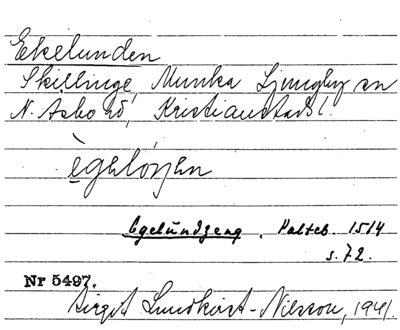 Ekelunden
Skillinge, Munka Ljungby sn
N. Åsbo hd, Kristianstads l.
Egelundzeng. Palteb. 1514
s. 72.
Nr 5497.
Birgit Lundkvist-Nilsson, 1941.